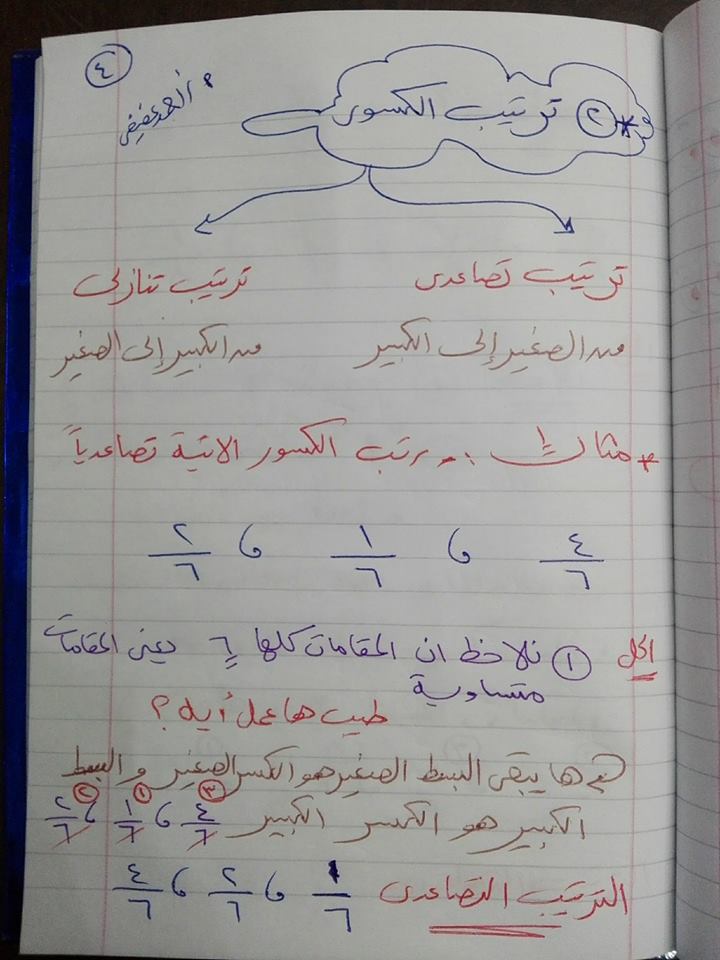 ٤
أ. احمد عفيفى
* ② ترتيب الكسور
ترتيب تصاعدى
من الصغير إلى الكبير
ترتيب تنازلى
من الكبير إلى الصغير
* مثال ١ :- رتب الكسور الاتية تصاعدياً
٤/٦ ، ١/٦ ، ٢/٦
الحل ① نلاحظ ان المقامات كلها ٦ يعنى المقامات
متساوية
طيب هاعمل أيه ؟
هايبقى البسط الصغير هو الكسر الصغير والبسط
الكبير هو الكسر الكبير ③ ٤/٦ ، ① ١/٦ ، ② ٢/٦
الترتيب التصاعدى ١/٦ ، ٢/٦ ، ٤/٦